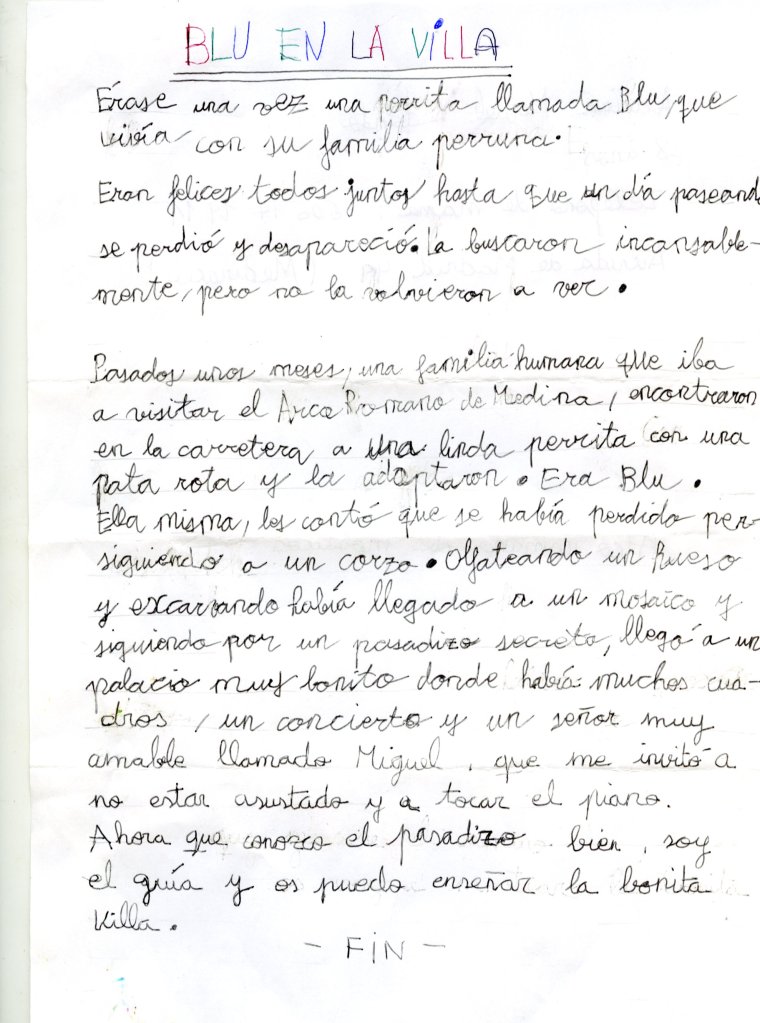 BLU EN LA VILLA
Érase una vez una perrita llamada Blu, que
vivía con su familia perruna.
Eran felices todos juntos hasta que un día paseando
se perdió y desapareció. La buscaron incansable-
mente, pero no la volvieron a ver.
Pasados unos meses, una familia humana que iba
a visitar el Arco Romano de Medina, encontraron
en la carretera a una linda perrita con una
pata rota y la adoptaron. Era Blu.
Ella misma, les contó que se había perdido per-
siguiendo a un corzo. Olfateando un hueso
y excarvando había llegado a un mosaico y
siguiendo por un pasadizo secreto, llegó a un
palacio muy bonito donde había muchos cua-
dros, un concierto y un señor muy
amable llamado Miguel, que me invitó a
no estar asustado y a tocar el piano.
Ahora que conozco el pasadizo bien, soy
el guía y os puedo enseñar la bonita
Villa.
- FIN -